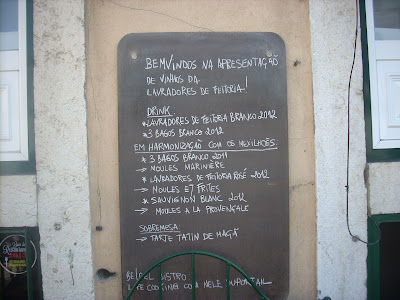 BEMVINDOS NA APRESENTAÇÃO
DE VINHOS DA
LAVRADORES DE FEITORIA!
DRINK
* LAVRADORES DE FEITORIA BRANCO 2012
* 3 BAGOS BRANCO 2012
EM HARMONIZAÇÃO COM OS MEXILHÕES:
* 3 BAGOS BRANCO 2011
→ MOULES MARINIÈRE
* LAVRADORES DE FEITORIA ROSÉ 2012
→ MOULES ET FRITES
* SAUVIGNON BLANC 2012
→ MOULES A LA PROVENÇALE
SOBREMESA:
→ TARTE TATIN DE MAÇÃ
COOKING COM NELE